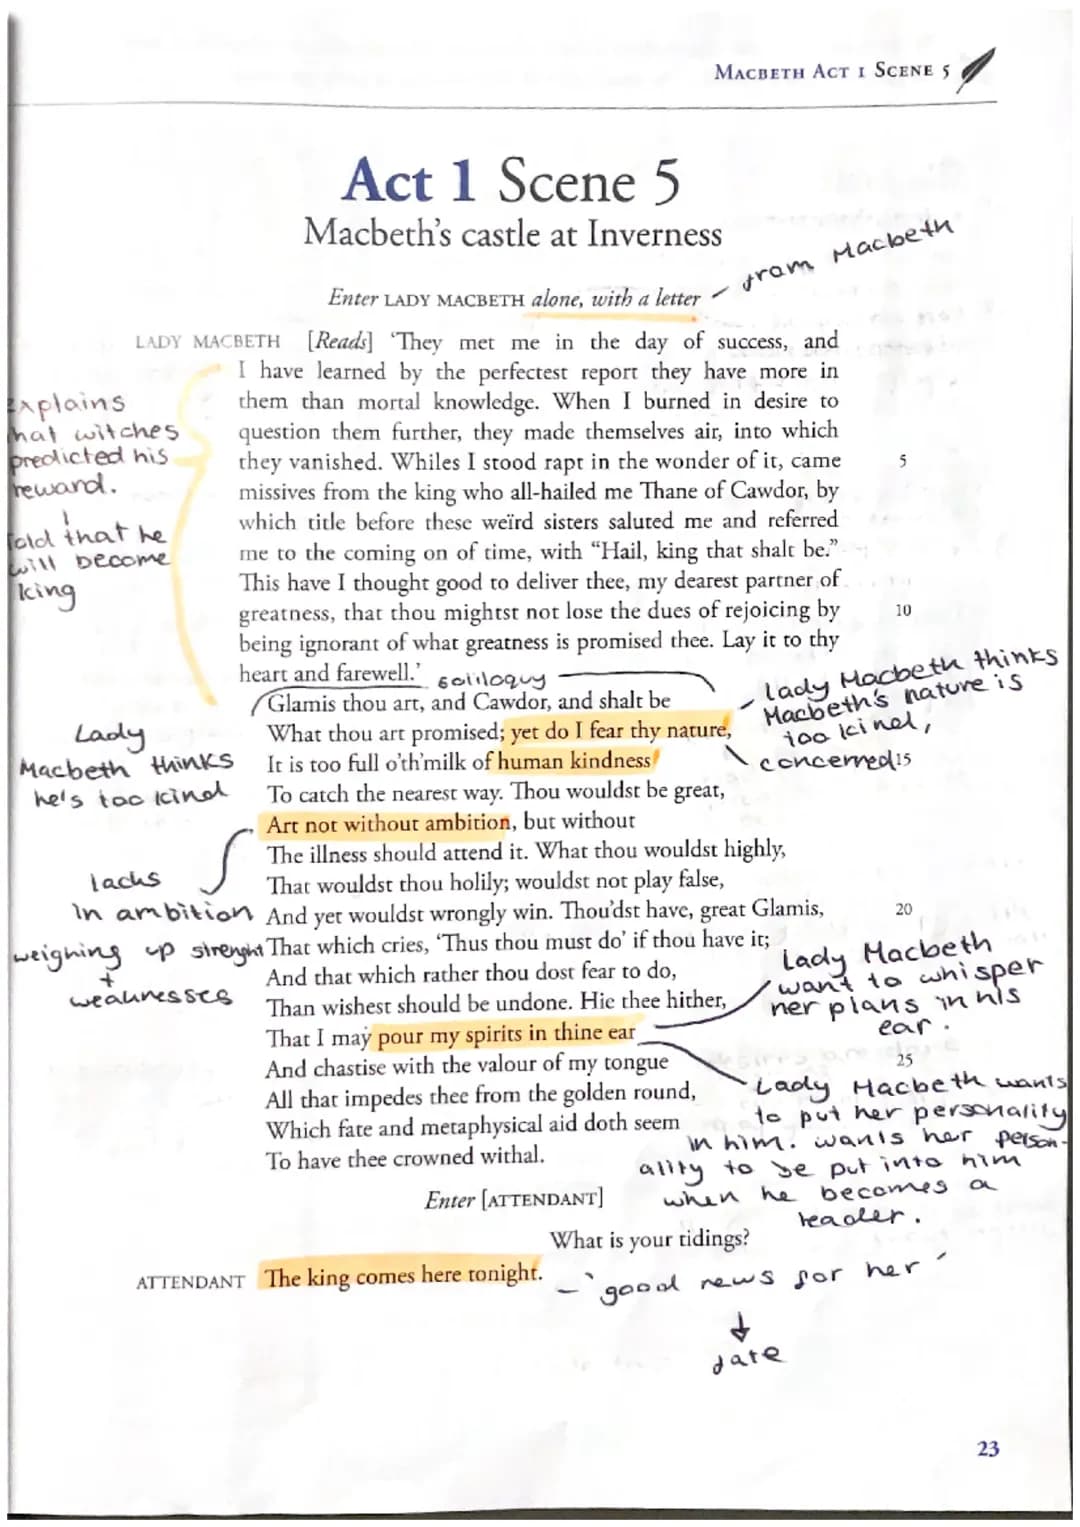 MACBETH ACT 1 SCENE 5
Act 1 Scene 5
Macbeth's castle at Inverness
from Macbeth
Enter LADY MACBETH alone, with a letter
LADY MACBETH [Reads] 'They met me in the day of success, and
I have learned by the perfectest report they have more in
them than mortal knowledge. When I burned in desire to
question them further, they made themselves air, into which
they vanished. Whiles I stood rapt in the wonder of it, came 5
missives from the king who all-hailed me Thane of Cawdor, by
which title before these weïrd sisters saluted me and referred
me to the coming on of time, with “Hail, king that shalt be.”
This have I thought good to deliver thee, my dearest partner of
greatness, that thou mightst not lose the dues of rejoicing by 10
being ignorant of what greatness is promised thee. Lay it to thy
heart and farewell.'
Explains
that witches
predicted his
reward.
Told that he
will become
king
soliloquy
Glamis thou art, and Cawdor, and shalt be
What thou art promised; yet do I fear thy nature,
It is too full o'th'milk of human kindness 15
To catch the nearest way. Thou wouldst be great,
Art not without ambition, but without
The illness should attend it. What thou wouldst highly,
That wouldst thou holily; wouldst not play false,
And yet wouldst wrongly win. Thou'dst have, great Glamis, 20
That which cries, 'Thus thou must do' if thou have it;
And that which rather thou dost fear to do,
Than wishest should be undone. Hie thee hither,
That I may pour my spirits in thine ear
And chastise with the valour of my tongue 25
All that impedes thee from the golden round,
Which fate and metaphysical aid doth seem
To have thee crowned withal.
lady Macbeth thinks
Macbeth's nature is
too kind,
concerned
Lady
Macbeth thinks
he's too kind
lacks
in ambition
weighing up strenght
+
weaknesses
Lady Macbeth
want to whisper
her plans in his
ear.
Lady Macbeth wants
to put her personality
in him. wants her person-
ality to be put into him
when he becomes a
leader.
Enter [ATTENDANT]
What is your tidings?
ATTENDANT The king comes here tonight.
- 'good news for her'
fate
23